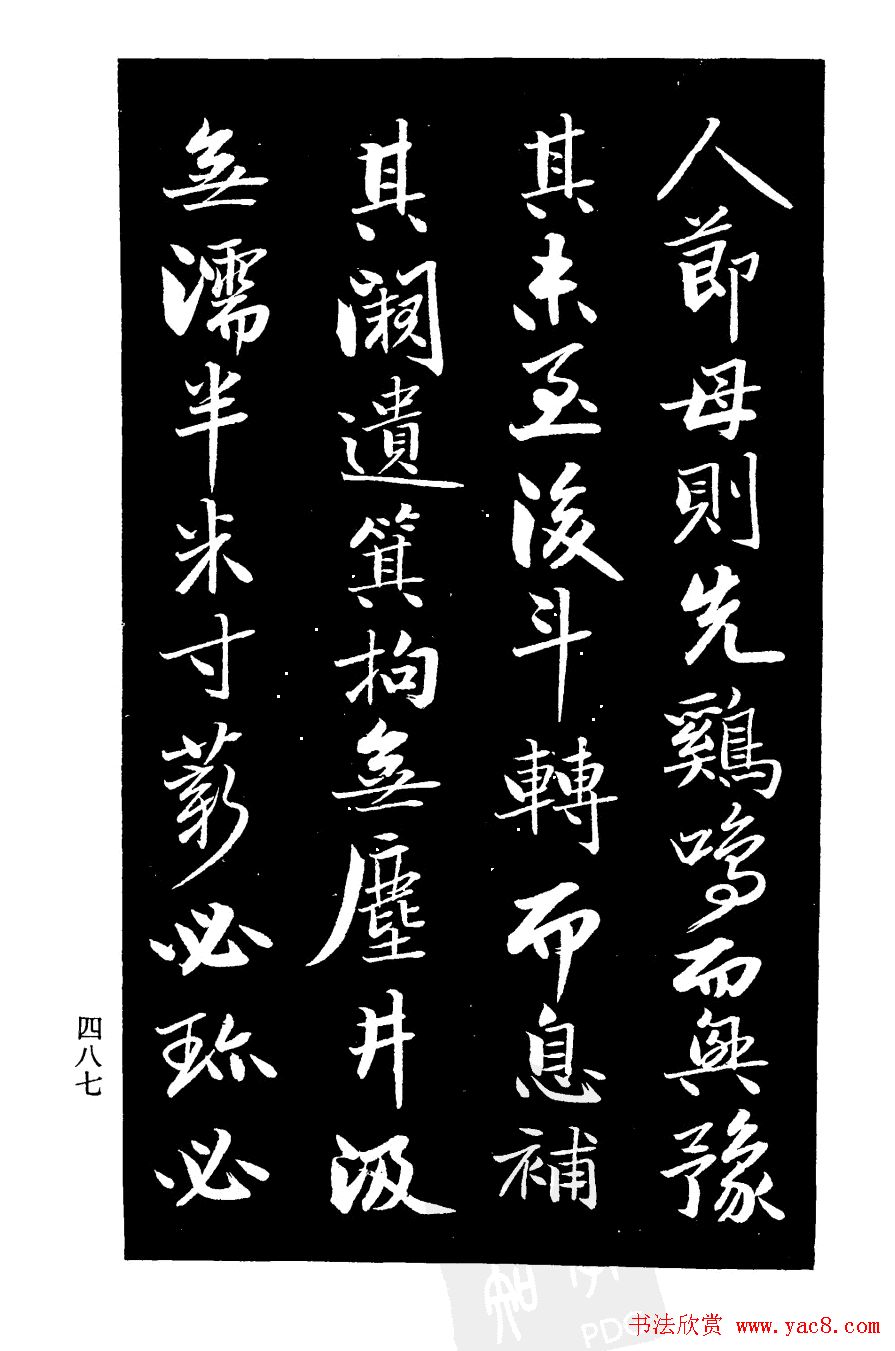 人節母則先鷄鳴而興豫
其未至後斗轉而息補
其闕遺箕拘無塵井汲
無濡半米寸薪必珎必
四八七
书法欣赏 www.yac8.com